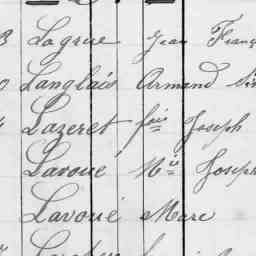 Lagrue Jean Franç
Langlais Armand
Lazeret fois Joseph
Lavoué Nie Joseph
Lavoué Marc